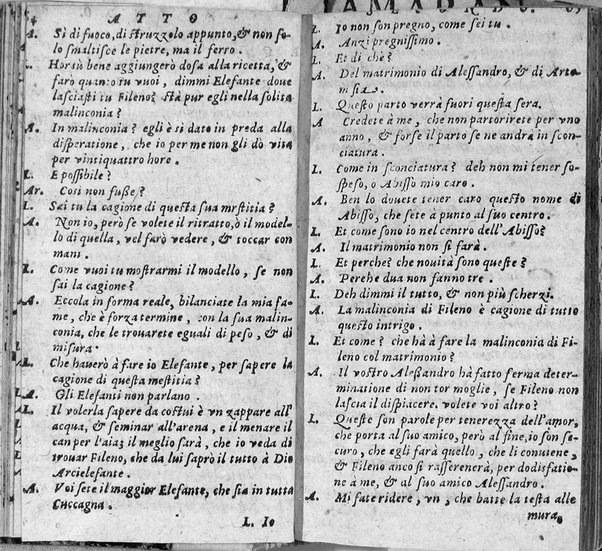 ATTO
A. Sì di fuoco, di struzzolo appunto, & non so
lo smaltisce le pietre, ma il ferro.
L. Horsù bene aggiungerò dosa alla ricetta, &
farò quanto tu vuoi, dimmi Elefante doue
lasciasti tu Fileno? stà pur egli nella solita
malinconia?
A. In malinconia? egli è si dato in preda alla
disperatione, che io per me non gli dò vita
per vintiquattro hore.
L. E possibile?
Ar. Cosi non fuße?
L. Sai tu la cagione di questa sua mestitia?
A. Non io, però se volete il ritratto, ò il model-
lo di quella, vel farò vedere, & toccar con
mani.
L. Come vuoi tu mostrarmi il modello, se non
sai la cagione?
A. Eccola in forma reale, bilanciate la mia fa-
me, che è forza termine, con la sua malin-
conia, che le trouarete eguali di peso, & di
misura.
L. Che hauerò à fare io Elefante, per sapere la
cagione di questa mestitia?
A. Gli Elefanti non parlano.
L. Il volerla sapere da costui è vn zappare all'
acqua, & seminar all'arena, e il menare il
can per l'aia; il meglio sarà, che io veda di
trouar Fileno, che da lui saprò il tutto à Dio
Arcielefante.
A. Voi sete il maggior Elefante, che sia in tutta
Cuccagna.
L. Io
L. Io non son pregno, come sei tu.
A. Anzi pregnissimo.
L. Et di chè?
A. Del matrimonio di Alessandro, & di Arte
misia.
L. Questo parto verrà fuori questa sera.
A Credete à me, che non partorirete per vno
anno, & forse il parto se ne andra in scon-
ciatura.
L. Come in sconciatura? deh non mi tener so-
speso, o Abisso mio caro.
A. Ben lo douete tener caro questo nome di
Abisso, che sete à punto al suo centro.
L. Et come sono io nel centro dell'Abisso?
A. Il matrimonio non si farà.
L. Et perche? che nouità sono queste?
A. Perche dua non fanno tre.
L. Deh dimmi il tutto, & non più scherzi.
A. La malinconia di Fileno è cagione di tutto
questo intrigo.
L. Et come? che hà à fare la malinconia di Fi-
leno col matrimonio?
A. Il vostro Aleßandro hà fatto ferma deter-
minatione di non tor moglie, se Fileno non
lascia il dispiacere. volete voi altro?
L. Queste son parole per tenerezza dell'amor,
che porta al suo amico, però al fine, io son se-
curo, che egli farà quello, che li conuiene,
& Fileno anco si rasserenerà, per dodisfatio-
ne à me, & al suo amico Alessandro.
A. Mi fate ridere, vn, che batte la testa alle
mura,